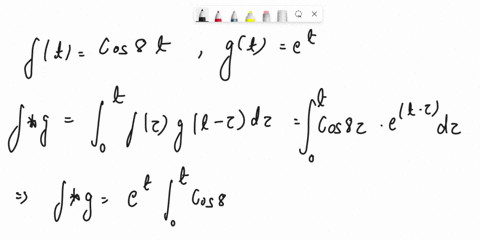 f(t) = Cos 8 t , g(t) = e^t
f*g = ∫_0^t f(τ) g(t-τ) dτ = ∫_0^t Cos8τ · e^(t-τ) dτ
=> f*g = e^t ∫_0^t Cos8